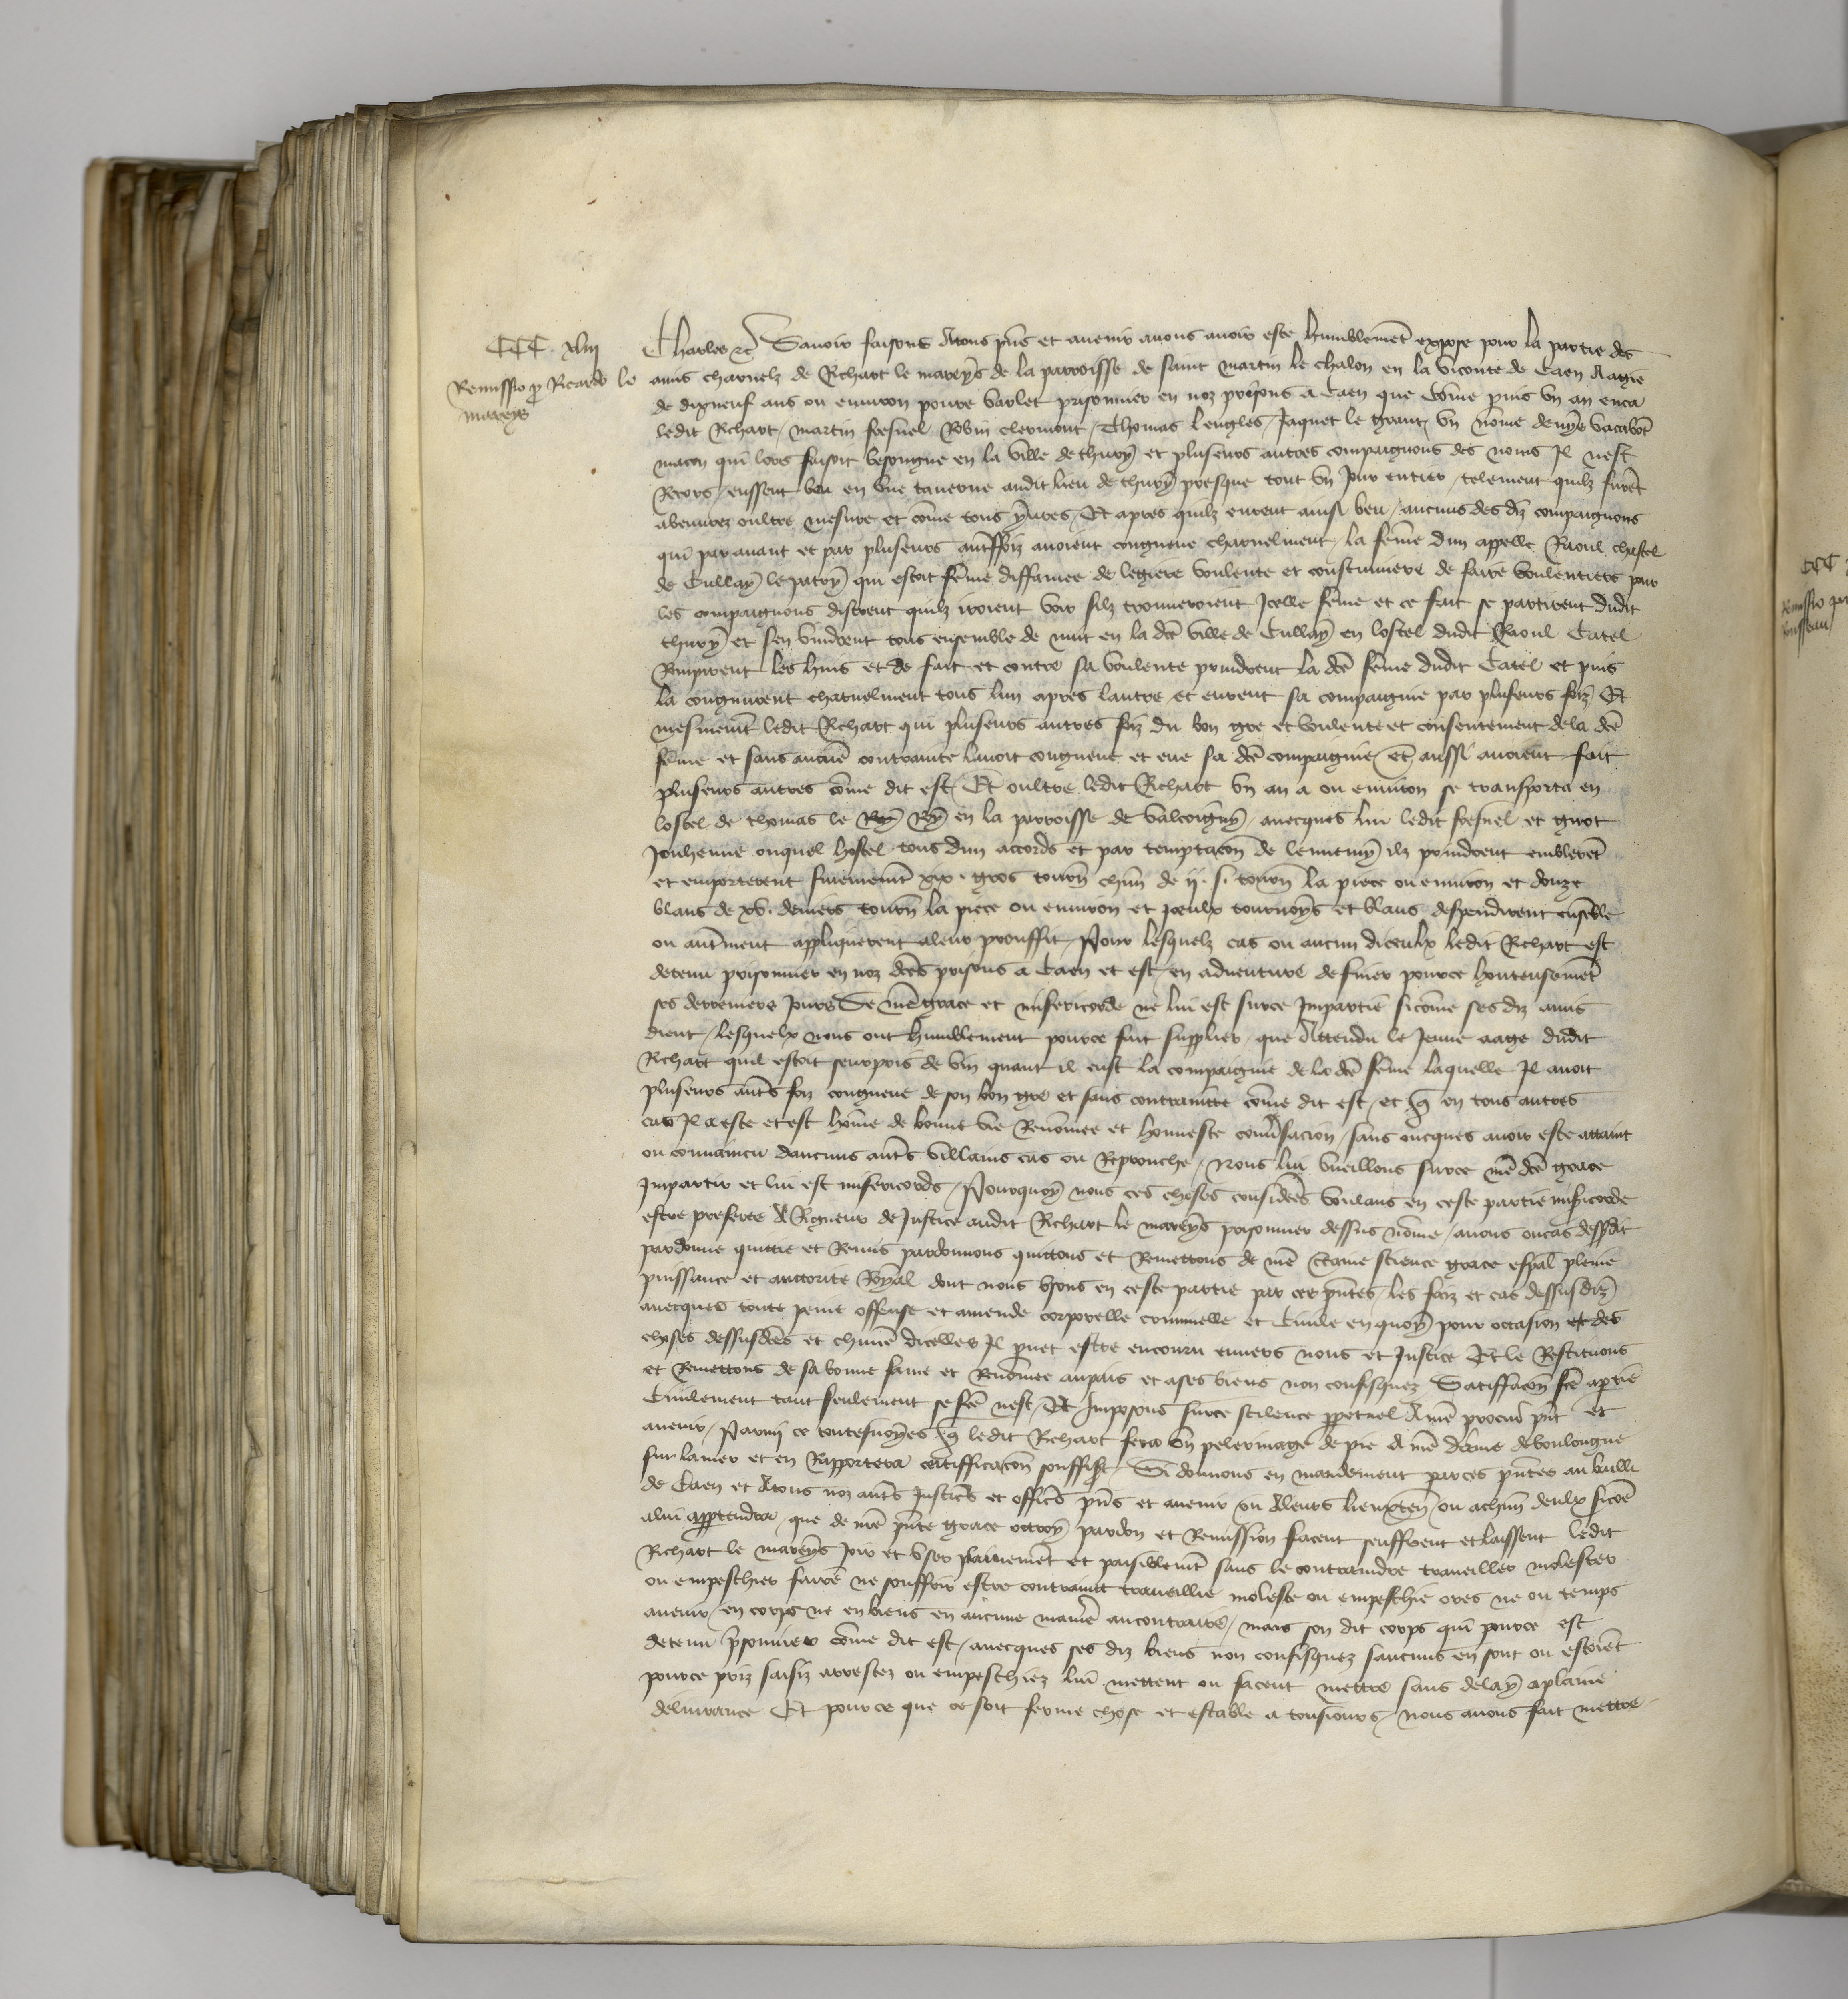 CCC. xliii
Remissio p Ricardo le
mareys
Charles etc Savoir faisons Atous pns et avenir anous avoir este humblemet expose pour la partie des
amis charnelz de Richart le mareys de la parroisse de saint martin le chalon en la viconte de Caen Aagie
de dixneuf ans ou environ povre varlet prisonnier en noz prisons a Caen que Come puis un an enca
ledit Richart / martin fresnel Robin clermont / Thomas lengles / Jaquet le grant / un nome denys
macon qui lors faisoit besongne en la ville de thury et pluseurs autres compaignons des noms Il nest
Recors / eussent beu en une taverne audit lieu de thury presque tout un Jour entier / telement quilz furet
abeuvrez oultre mesure et come tous yvres / Et apres quilz eurent ainsi beu / aucuns des dz compaignons
qui par avant et par pluseurs autffoiz avoient congneue charnelment / la feme dun appelle Raoul chastel
de Cullay le patry qui estoit feme diffamee de legiere voulente et coustumiere de faire voulentiers pour
les compaignons distrent quilz iroient voir silz trouveroient Icelle feme et ce fait se partirent dudit
thury et sen vindrent tous ensemble de nuit en la dce ville de Cullay en lostel dudit Raoul Catel
Rompirent les huis et de fait et contre sa voulente prindrent la dce feme dudit Catel et puis
la congnurent charnelment tous lun apres lautre et eurent sa compaignie par pluseurs foiz Et
mesmemt ledit Richart qui pluseurs autres foiz du bon gre et voulente et consentement dela dce
feme et sans aucune contrainte lavoit congneue et eue sa dce compaignie et aussi avoient fait
pluseurs autres come dit est / Et oultre ledit Richart un an a ou environ se transporta en
lostel de thomas le Roy Roy en la parroisse de / avecques lui ledit fresnel et guiot
Jouhenne ouquel hostel tous dun accords et par temptacon de lennemy ilz prindrent emblerent
et emporterent furtivemt xix. gros tourn chun de ii. s. tourn la piece ou environ et douze
blans de xv. deniers tourn la piece ou environ et Iceulx tournoys et blans despendirent enseble
ou autment appliquerent aleur prouffit / Pour lesquelz cas ou aucun diceulx ledit Richart est
detenu prisonnier en noz dces prisons a Caen et est en adventure de finer pource honteusemet
ses derreniers Jours Se nre grace et misericorde ne lui est surce Impartie sicome ses dz amis
dient / lesquelx nous ont humblement pource fait supplier / que Attendu le Jeune aage dudit
Richart quil estoit seurpris de vin quant il eust la compaignie de la dce feme laquelle Il avoit
pluseurs auts foiz congneue de son bon gre et sans contrainte come dit est / et q en tous autres
cas Il a este et est home de bonne vie Renomee et honneste conversacion / sans oncques avoir este attaint
ou convaincu daucuns auts villains cas ou Reprouche / Nous lui vueillons surce nre dce grace
Impartir et lui est misericords / Pourquoy nous ces choses considees voulans en ceste partie misicorde
estre preferee A Rigueur de Justice audit Richart le mareys prisonnier dessus nome / avons oucas dessdit
pardonne quittie et Remis pardonnons quittons et Remettons de nre ctaine science grace espal pleine
puissance et auctorite Royal dont nous usons en ceste partie par ces pntes / les faiz et cas dessus diz
avecques toute peine offense et amende corporelle criminelle et Civile en quoy pour occasion et des
choses dessusdces et chune dicelles Il puet estre encouru envers nous et Justice Et le Restituons
et Remettons de sa bonne fame et Renomee aupais et ases biens non confisquez Satiffacon fce aptie
Civilement tant seulement se fce nest / Et Imposons surce scilence perpetuel A nre procur pnt et
avenir / Parmi ce toutesvoyes q ledit Richart fera un pelerinage de pie A nre dame de bouloingne
sur la mer et en Rapportera certifficacon souffist / Si donnons en mandement par ces pntes au bailli
de Caen et Atous noz auts Justics et offics pns et avenir ou Aleurs lieuxten / ou achun deulx sicoe
alui apptendra / que de nre pnte grace ottroy pardon et Remission facent seuffrent et laissent ledit
Richart le mareys Joir et user plainemet et paisiblemt sans le contraindre travaillier molester
ou empeschier faire ne souffrir estre contraint travaillie moleste ou empeschie ores ne ou temps
avenir / en corps ne en biens en aucune maniee aucontraire / mais son dit corps qui pource est
detenu prisonnier come dit est / avecques ses diz biens non confisquez saucuns en sont ou estoient
pource priz saisiz arrestez ou empeschiez lui mettent ou facent mettre sans delay aplaine
delivrance Et pource que ce soit ferme chose et estable a tousiours / nous avons fait mettre
CCC